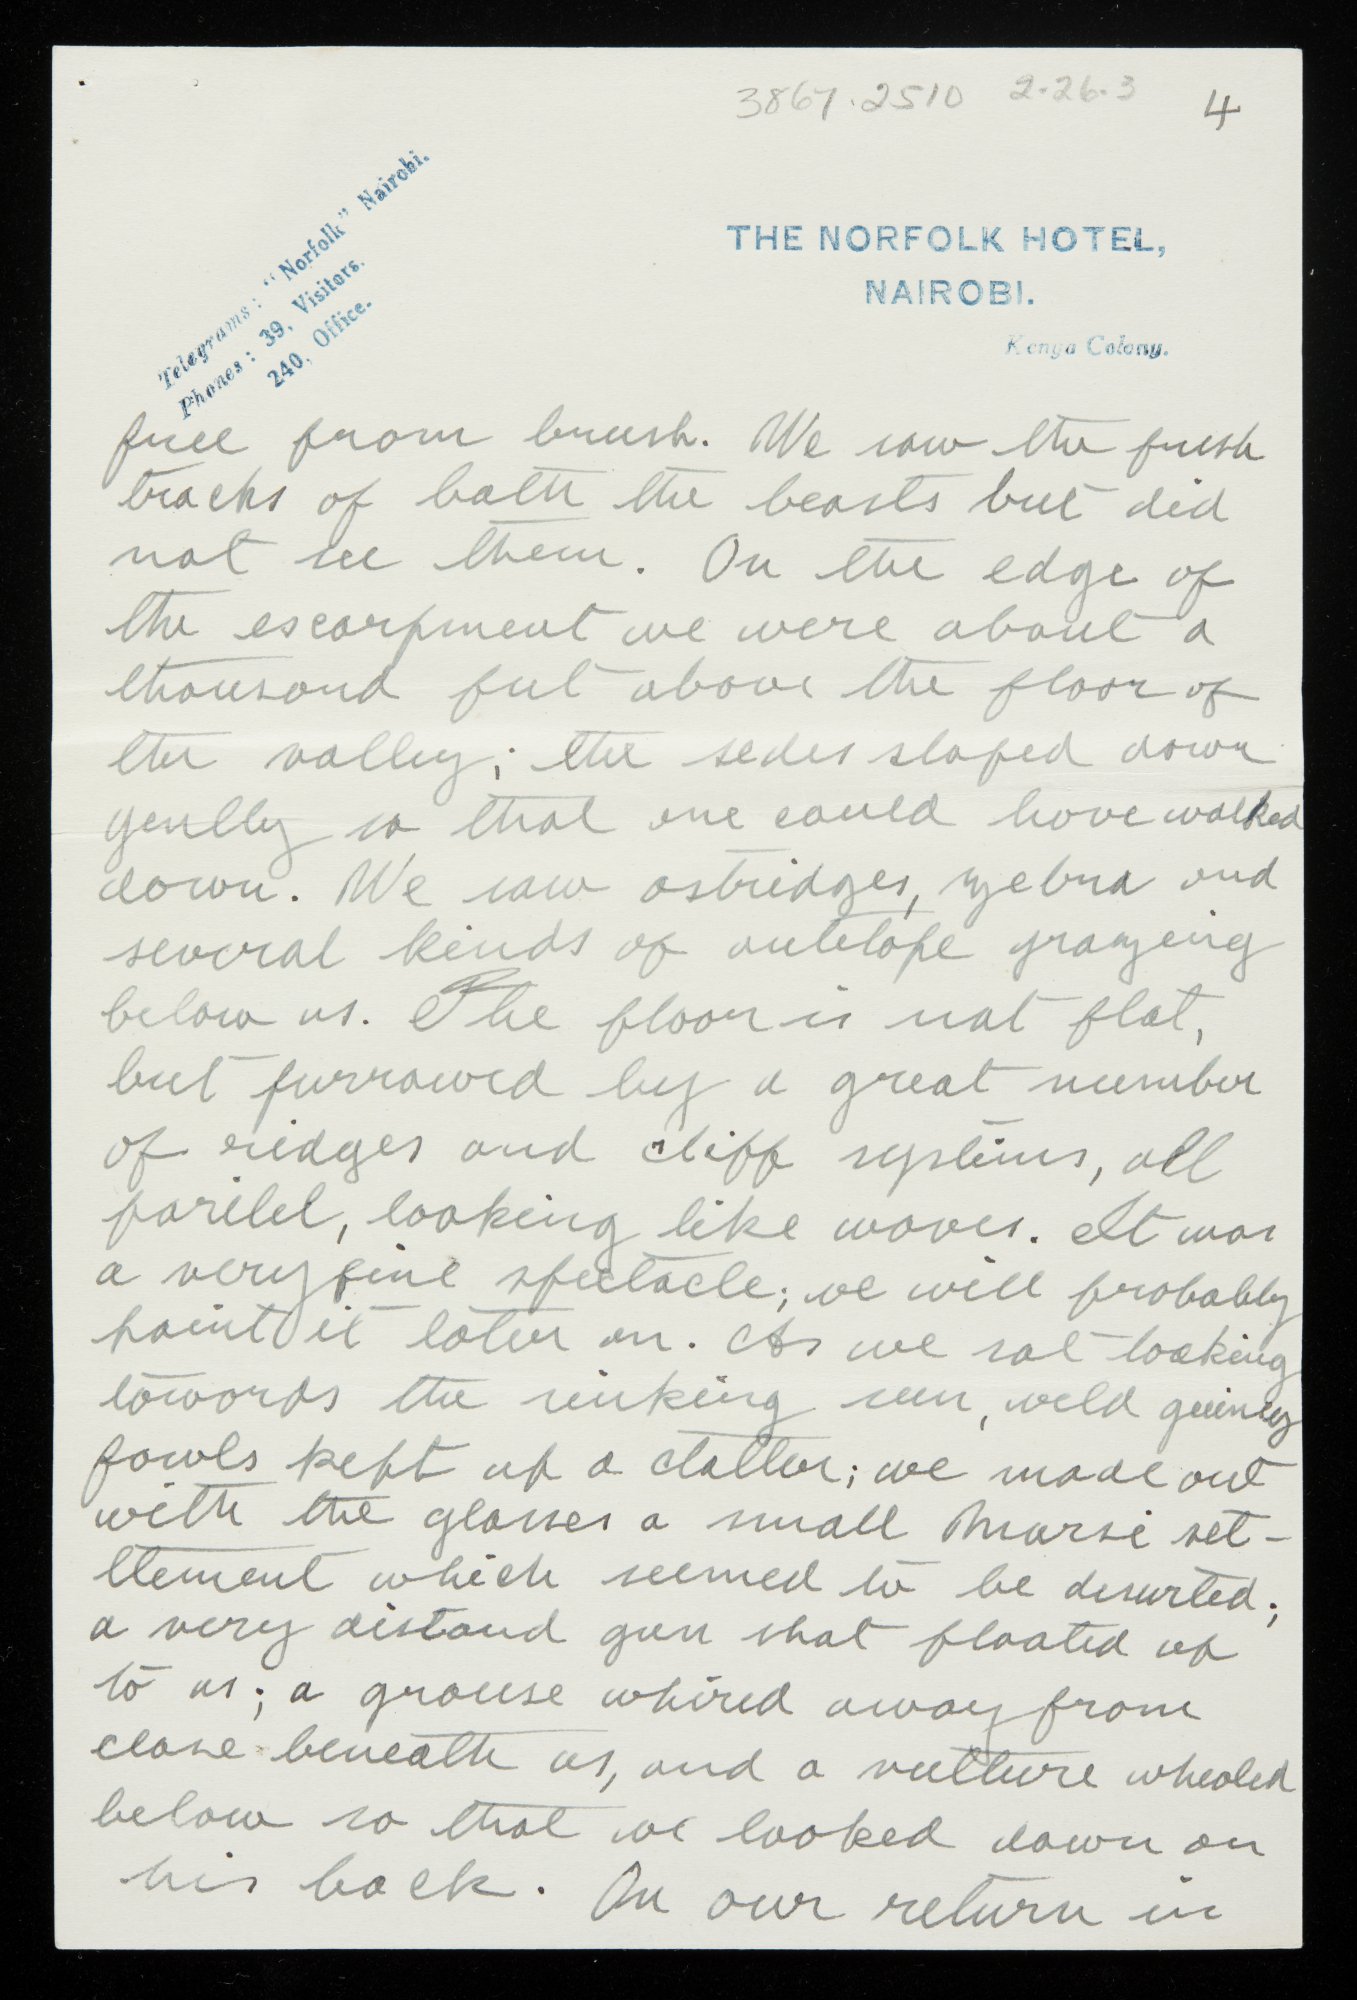 3867.2510 2.26.3 4
Telegrams: "Norfolk" Nairobi.
Phones: 39, Visitors.
240, Office.
THE NORFOLK HOTEL,
NAIROBI.
Kenya Colony.
free from brush. We saw the fresh
tracks of both the beasts but did
not see them. On the edge of
the escarpment we were about a
thousand feet above the floor of
the valley; the sides sloped down
gently so that one could have walked
down. We saw ostridges, zebra and
several kinds of antelope grazing
below us. The floor is not flat,
but furrowed by a great number
of ridges and cliff systims, all
parilel, looking like waves. It was
a very fine spectacle; we will probably
paint it later on. As we sat looking
towards the sinking sun, wild guiney
fowls kept up a clatter; we made out
with the glasses a small Marsi set-
tlement which seemed to be deserted;
a very distand gun shot floated up
to us; a grouse whired away from
close beneath us, and a vulture whealed
below so that we looked down on
his back. On our return in